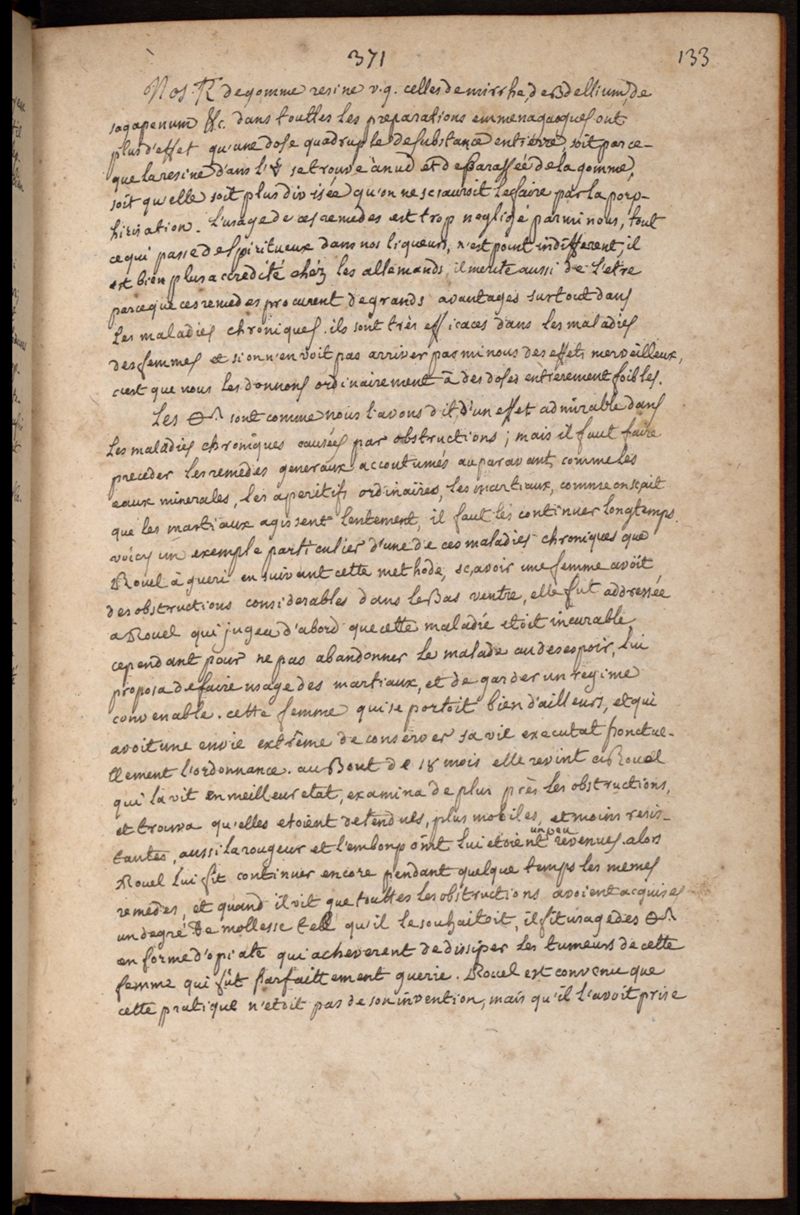 371 133
Nos de gomme resine v.g. celles de mirrhe, de Bdellium, de
sagapenum &c. dans touttes les preparations emmenagogues ont
plus d'effet qu'une dose quadruple de substance entiere, soit parce-
que la resine dans l' se trouve à nud et debarassée de la gomme,
soit qu'elle soit plus divisée qu'on ne sçauroit le faire par la porp-
hirisation. L'usage de ces remedes est trop negligé parmi nous, tout
ce qui passe de spiritueux dans nos liqueurs, n'est point indifferent, il
est bien plus accredité chéz les allemands, il merite aussi de l'etre
parceque ces remedes procurent de grands avantages surtout dans
les maladies chroniques. ils sont très efficaces dans les maladies
des femmes et si on n'en voit pas arriver parmi nous des effets merveilleux,
c'est que nous les donnons ordinairement à des doses entierement foibles.
Les sont comme nous l'avons dit d'un effet admirable dans
les maladies chroniques causées par obstructions; mais il faut faire
preceder les remedes generaux accoutumés auparavant, comme les
eaux minerales, les aperitifs ordinaires, les martiaux, comme on sçait
que les martiaux agissent lentement, il faut les continuer longtemps.
voicy un exemple particulier d'une de ces maladies chroniques que
Rouel à gueri en suivant cette methode, sçavoir une femme avoit
des obstructions considerables dans le Bas ventre, elle fut addressée
a Rouel qui jugea d'abord que cette maladie etoit incurable,
cependant pour ne pas abandonner le malade au desespoir, lui
proposa de faire usage des martiaux, et de garder un regime
convenable. cette femme qui se portoit bien d'ailleurs, et qui
avoit une envie extrême de conserver sa vie executat ponctuel-
llement l'ordonnance. au Bout de 18 mois elle revint a Rouel
qui la vit en meilleur etat, examina de plus près les obstructions,
et trouva qu'elles etoient detendues, plus mobiles, et moins resis-
tantes, aussi la rougeur et l'embonpoint lui etoient un peu revenues. alors
Rouel lui fit continuer encore pendant quelque temps les memes
remedes, et quand il vit que touttes les obstructions avoient acquises
un degré de mollesse tell qu'il le souhaitoit, il fit usage des
en forme d'opiate qui acheverent de dissiper les tumeurs de cette
femme qui fut parfaittement guerie. Rouel est convenu que
cette pratique n'etoit pas de son invention, mais qu'il l'avoit prise